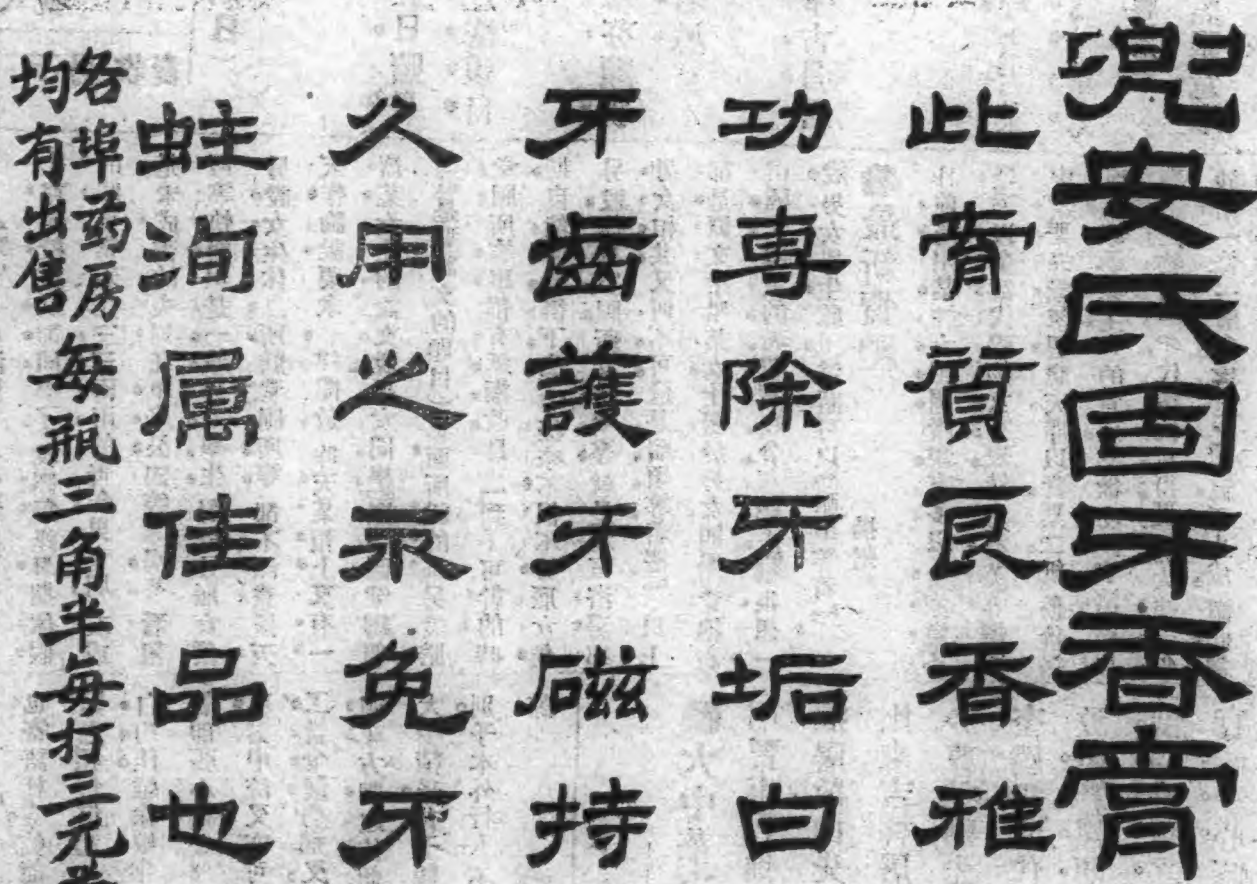 兜安氏固牙香膏
此膏質良香雅
功專除牙垢白
牙齒護牙磁持
久用之永免牙
蛀洵属佳品也
各埠药房
均有出售
每瓶三角半每打三元